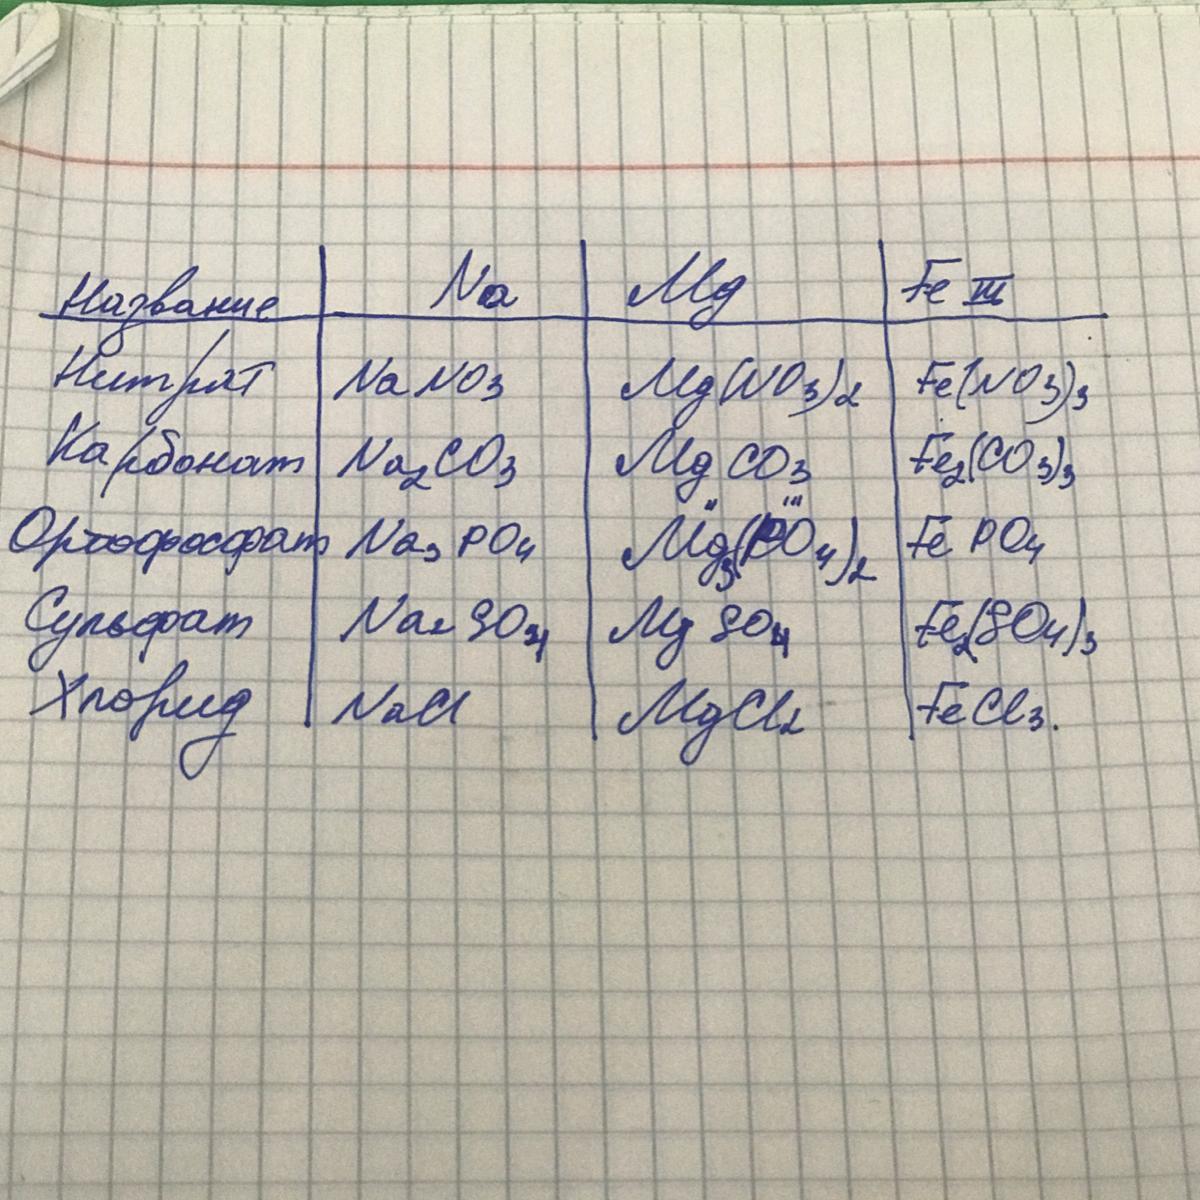 Название Na Mg Fe III
Нитрат NaNO3 Mg(NO3)2 Fe(NO3)3
Карбонат Na2CO3 MgCO3 Fe2(CO3)3
Ортофосфат Na3PO4 Mg3(PO4)2 FePO4
Сульфат Na2SO4 MgSO4 Fe2(SO4)3
Хлорид NaCl MgCl2 FeCl3.